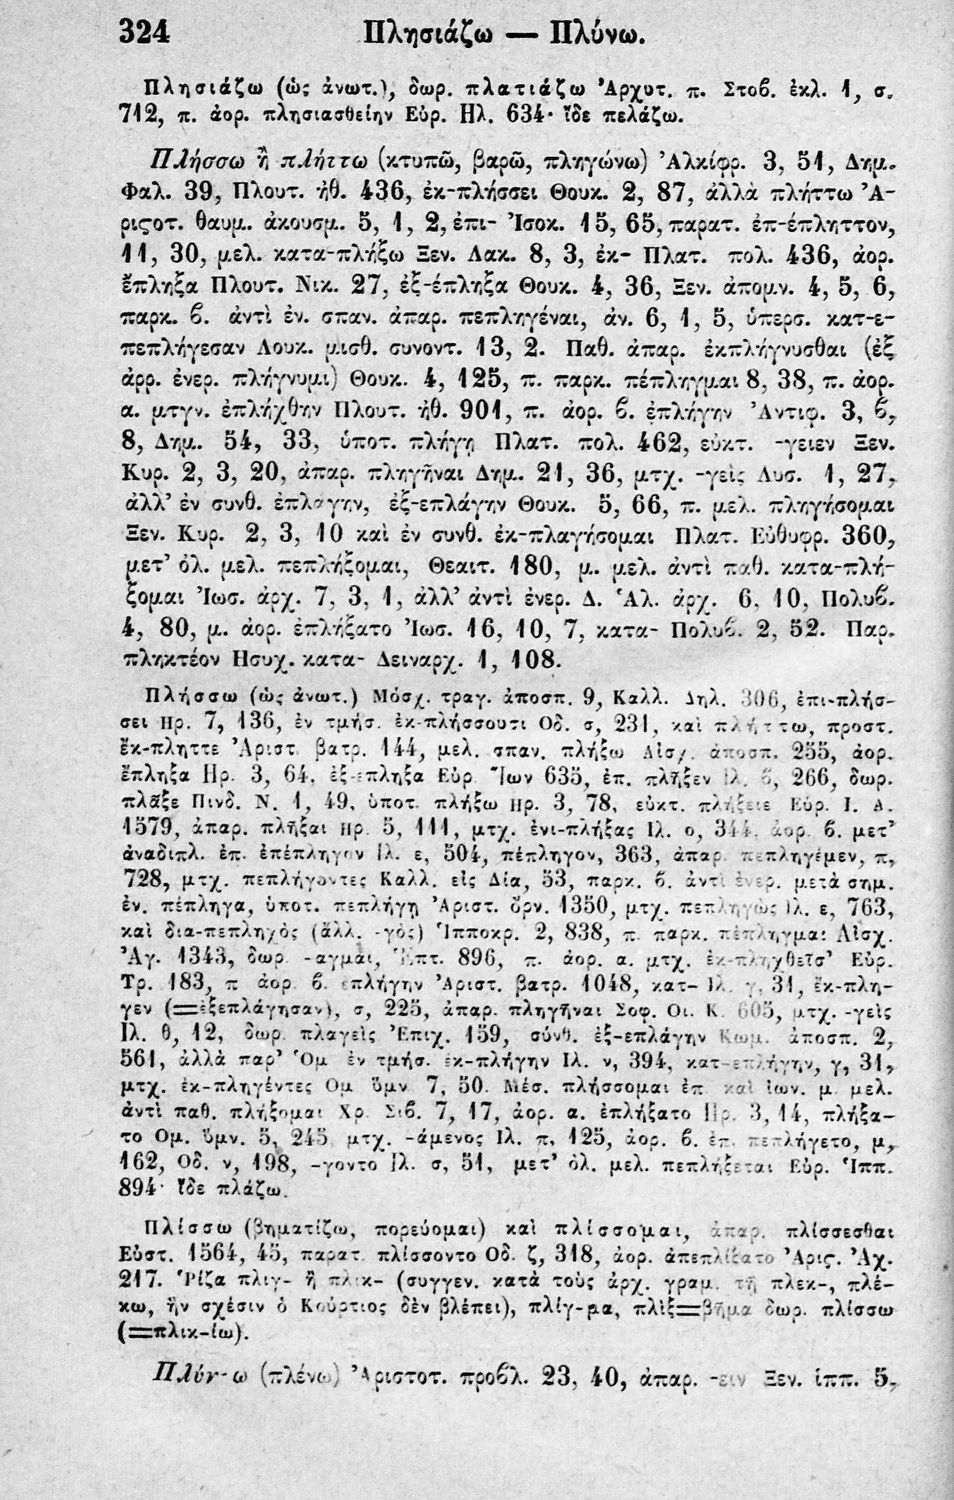 324 Πλησιάζω — Πλύνω.
Πλησιάζω (ὡς ἀνωτ.), δωρ. πλατιάζω Ἀρχυτ. π. Στοϐ. ἐκλ. 1, σ.
712, π. ἀορ. πλησιασθείην Εὐρ. Ηλ. 634· ἴδε πελάζω.
Πλήσσω ἢ πλήττω (κτυπῶ, βαρῶ, πληγώνω) Ἀλκίφρ. 3, 51, Δημ.
Φαλ. 39, Πλουτ. ἠθ. 436, ἐκ-πλήσσει Θουκ. 2, 87, ἀλλὰ πλήττω Ἀ-
ριϛοτ. θαυμ. ἀκουσμ. 5, 1, 2, ἐπι- Ἰσοκ. 15, 65, παρατ. ἐπ-έπληττον,
11, 30, μελ. κατα-πλήξω Ξεν. Λακ. 8, 3, ἐκ- Πλατ. πολ. 436, ἀορ.
ἔπληξα Πλουτ. Νικ. 27, ἐξ-έπληξα Θουκ. 4, 36, Ξεν. ἀπομν. 4, 5, 6,
παρκ. ϐ. ἀντὶ ἐν. σπαν. ἀπαρ. πεπληγέναι, ἀν. 6, 1, 5, ὑπερσ. κατ-ε-
πεπλήγεσαν Λουκ. μισθ. συνοντ. 13, 2. Παθ. ἀπαρ. ἐκπλήγνυσθαι (ἐξ
ἀρρ. ἐνερ. πλήγνυμι) Θουκ. 4, 125, π. παρκ. πέπληγμαι 8, 38, π. ἀορ.
α. μτγν. ἐπλήχθην Πλουτ. ἠθ. 901, π. ἀορ. ϐ. ἐπλήγην Ἀντιφ. 3, ϐ,
8, Δημ. 54, 33, ὑποτ. πλήγῃ Πλατ. πολ. 462, εὐκτ. -γειεν Ξεν.
Κυρ. 2, 3, 20, ἀπαρ. πληγῆναι Δημ. 21, 36, μτχ. -γεὶς Λυσ. 1, 27,
ἀλλ' ἐν συνθ. ἐπλάγην, ἐξ-επλάγην Θουκ. 5, 66, π. μελ. πληγήσομαι
Ξεν. Κυρ. 2, 3, 10 καὶ ἐν συνθ. ἐκ-πλαγήσομαι Πλατ. Εὐθυφρ. 360,
μετ' ὀλ. μελ. πεπλήξομαι, Θεαιτ. 180, μ. μελ. ἀντὶ παθ. κατα-πλή-
ξομαι Ἰωσ. ἀρχ. 7, 3, 1, ἀλλ' ἀντὶ ἐνερ. Δ. Ἁλ. ἀρχ. 6, 10, Πολυϐ.
4, 80, μ. ἀορ. ἐπλήξατο Ἰωσ. 16, 10, 7, κατα- Πολυϐ. 2, 52. Παρ.
πληκτέον Ησυχ. κατα- Δειναρχ. 1, 108.
Πλήσσω (ὡς ἀνωτ.) Μόσχ. τραγ. ἀποσπ. 9, Καλλ. Δηλ. 306, ἐπι-πλήσ-
σει Ηρ. 7, 136, ἐν τμήσ. ἐκ-πλήσσουσι Οδ. σ, 231, καὶ πλήττω, προστ.
ἔκ-πληττε Ἀριστ. βατρ. 144, μελ. σπαν. πλήξω Αἰσχ. ἀποσπ. 255, ἀορ.
ἔπληξα Ηρ. 3, 64, ἐξ-έπληξα Εὐρ. Ἴων 635, ἐπ. πλῆξεν Ιλ. ϐ, 266, δωρ.
πλᾶξε Πινδ. Ν. 1, 49, ὑποτ. πλήξω Ηρ. 3, 78, εὐκτ. πλήξειε Εὐρ. Ι. Α.
1579, ἀπαρ. πλῆξαι Ηρ. 5, 111, μτχ. ἐνι-πλήξας Ιλ. ο, 344, ἀορ. ϐ. μετ'
ἀναδιπλ. ἐπ. ἐπέπληγον Ιλ. ε, 504, πέπληγον, 363, ἀπαρ. πεπληγέμεν, π,
728, μτχ. πεπλήγοντες Καλλ. εἰς Δία, 53, παρκ. ϐ. ἀντὶ ἐνερ. μετὰ σημ.
ἐν. πέπληγα, ὑποτ. πεπλήγῃ Ἀριστ. ὄρν. 1350, μτχ. πεπληγὼς Ιλ. ε, 763,
καὶ δια-πεπληχὸς (ἄλλ. -γὸς) Ἱπποκρ. 2, 838, π. παρκ. πέπληγμαι Αἰσχ.
Ἀγ. 1343, δωρ. -αγμαι, Ἑπτ. 896, π. ἀορ. α. μτχ. ἐκ-πληχθεῖσ' Εὐρ.
Τρ. 183, π. ἀορ. ϐ. ἐπλήγην Ἀριστ. βατρ. 1048, κατ- Ιλ. γ, 31, ἔκ-πλη-
γεν (=ἐξεπλάγησαν), σ, 225, ἀπαρ. πληγῆναι Σοφ. Οι. Κ. 605, μτχ. -γεὶς
Ιλ. θ, 12, δωρ. πλαγεὶς Ἐπιχ. 159, σύνθ. ἐξ-επλάγην Κωμ. ἀποσπ. 2,
561, ἀλλὰ παρ' Ὁμ. ἐν τμήσ. ἐκ-πλήγην Ιλ. ν, 394, κατ-επλήγην, γ, 31,
μτχ. ἐκ-πληγέντες Ομ. ὕμν. 7, 50. Μέσ. πλήσσομαι ἐπ. καὶ ἰων. μ. μελ.
ἀντὶ παθ. πλήξομαι Χρ. Σιϐ. 7, 17, ἀορ. α. ἐπλήξατο Ηρ. 3, 14, πλήξα-
το Ομ. ὕμν. 5, 245, μτχ. -άμενος Ιλ. π, 125, ἀορ. ϐ. ἐπ. πεπλήγετο, μ,
162, Οδ. ν, 198, -γοντο Ιλ. σ, 51, μετ' ὀλ. μελ. πεπλήξεται Εὐρ. Ἱππ.
894· ἴδε πλάζω.
Πλίσσω (βηματίζω, πορεύομαι) καὶ πλίσσομαι, ἀπαρ. πλίσσεσθαι
Εὐστ. 1564, 45, παρατ. πλίσσοντο Οδ. ζ, 318, ἀορ. ἀπεπλίξατο Ἀριϛ. Ἀχ.
217. Ῥίζα πλιγ- ἢ πλικ- (συγγεν. κατὰ τοὺς ἀρχ. γραμ. τῇ πλεκ-, πλέ-
κω, ἣν σχέσιν ὁ Κούρτιος δὲν βλέπει), πλίγ-μα, πλὶξ=βῆμα δωρ. πλίσσω
(=πλικ-ίω).
Πλύν-ω (πλένω) Ἀριστοτ. προϐλ. 23, 40, ἀπαρ. -ειν Ξεν. ἱππ. 5,